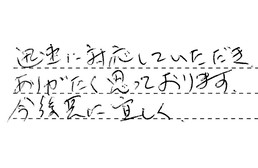 迅速に対応していただき
ありがたく思っております。
今後共に宜しく